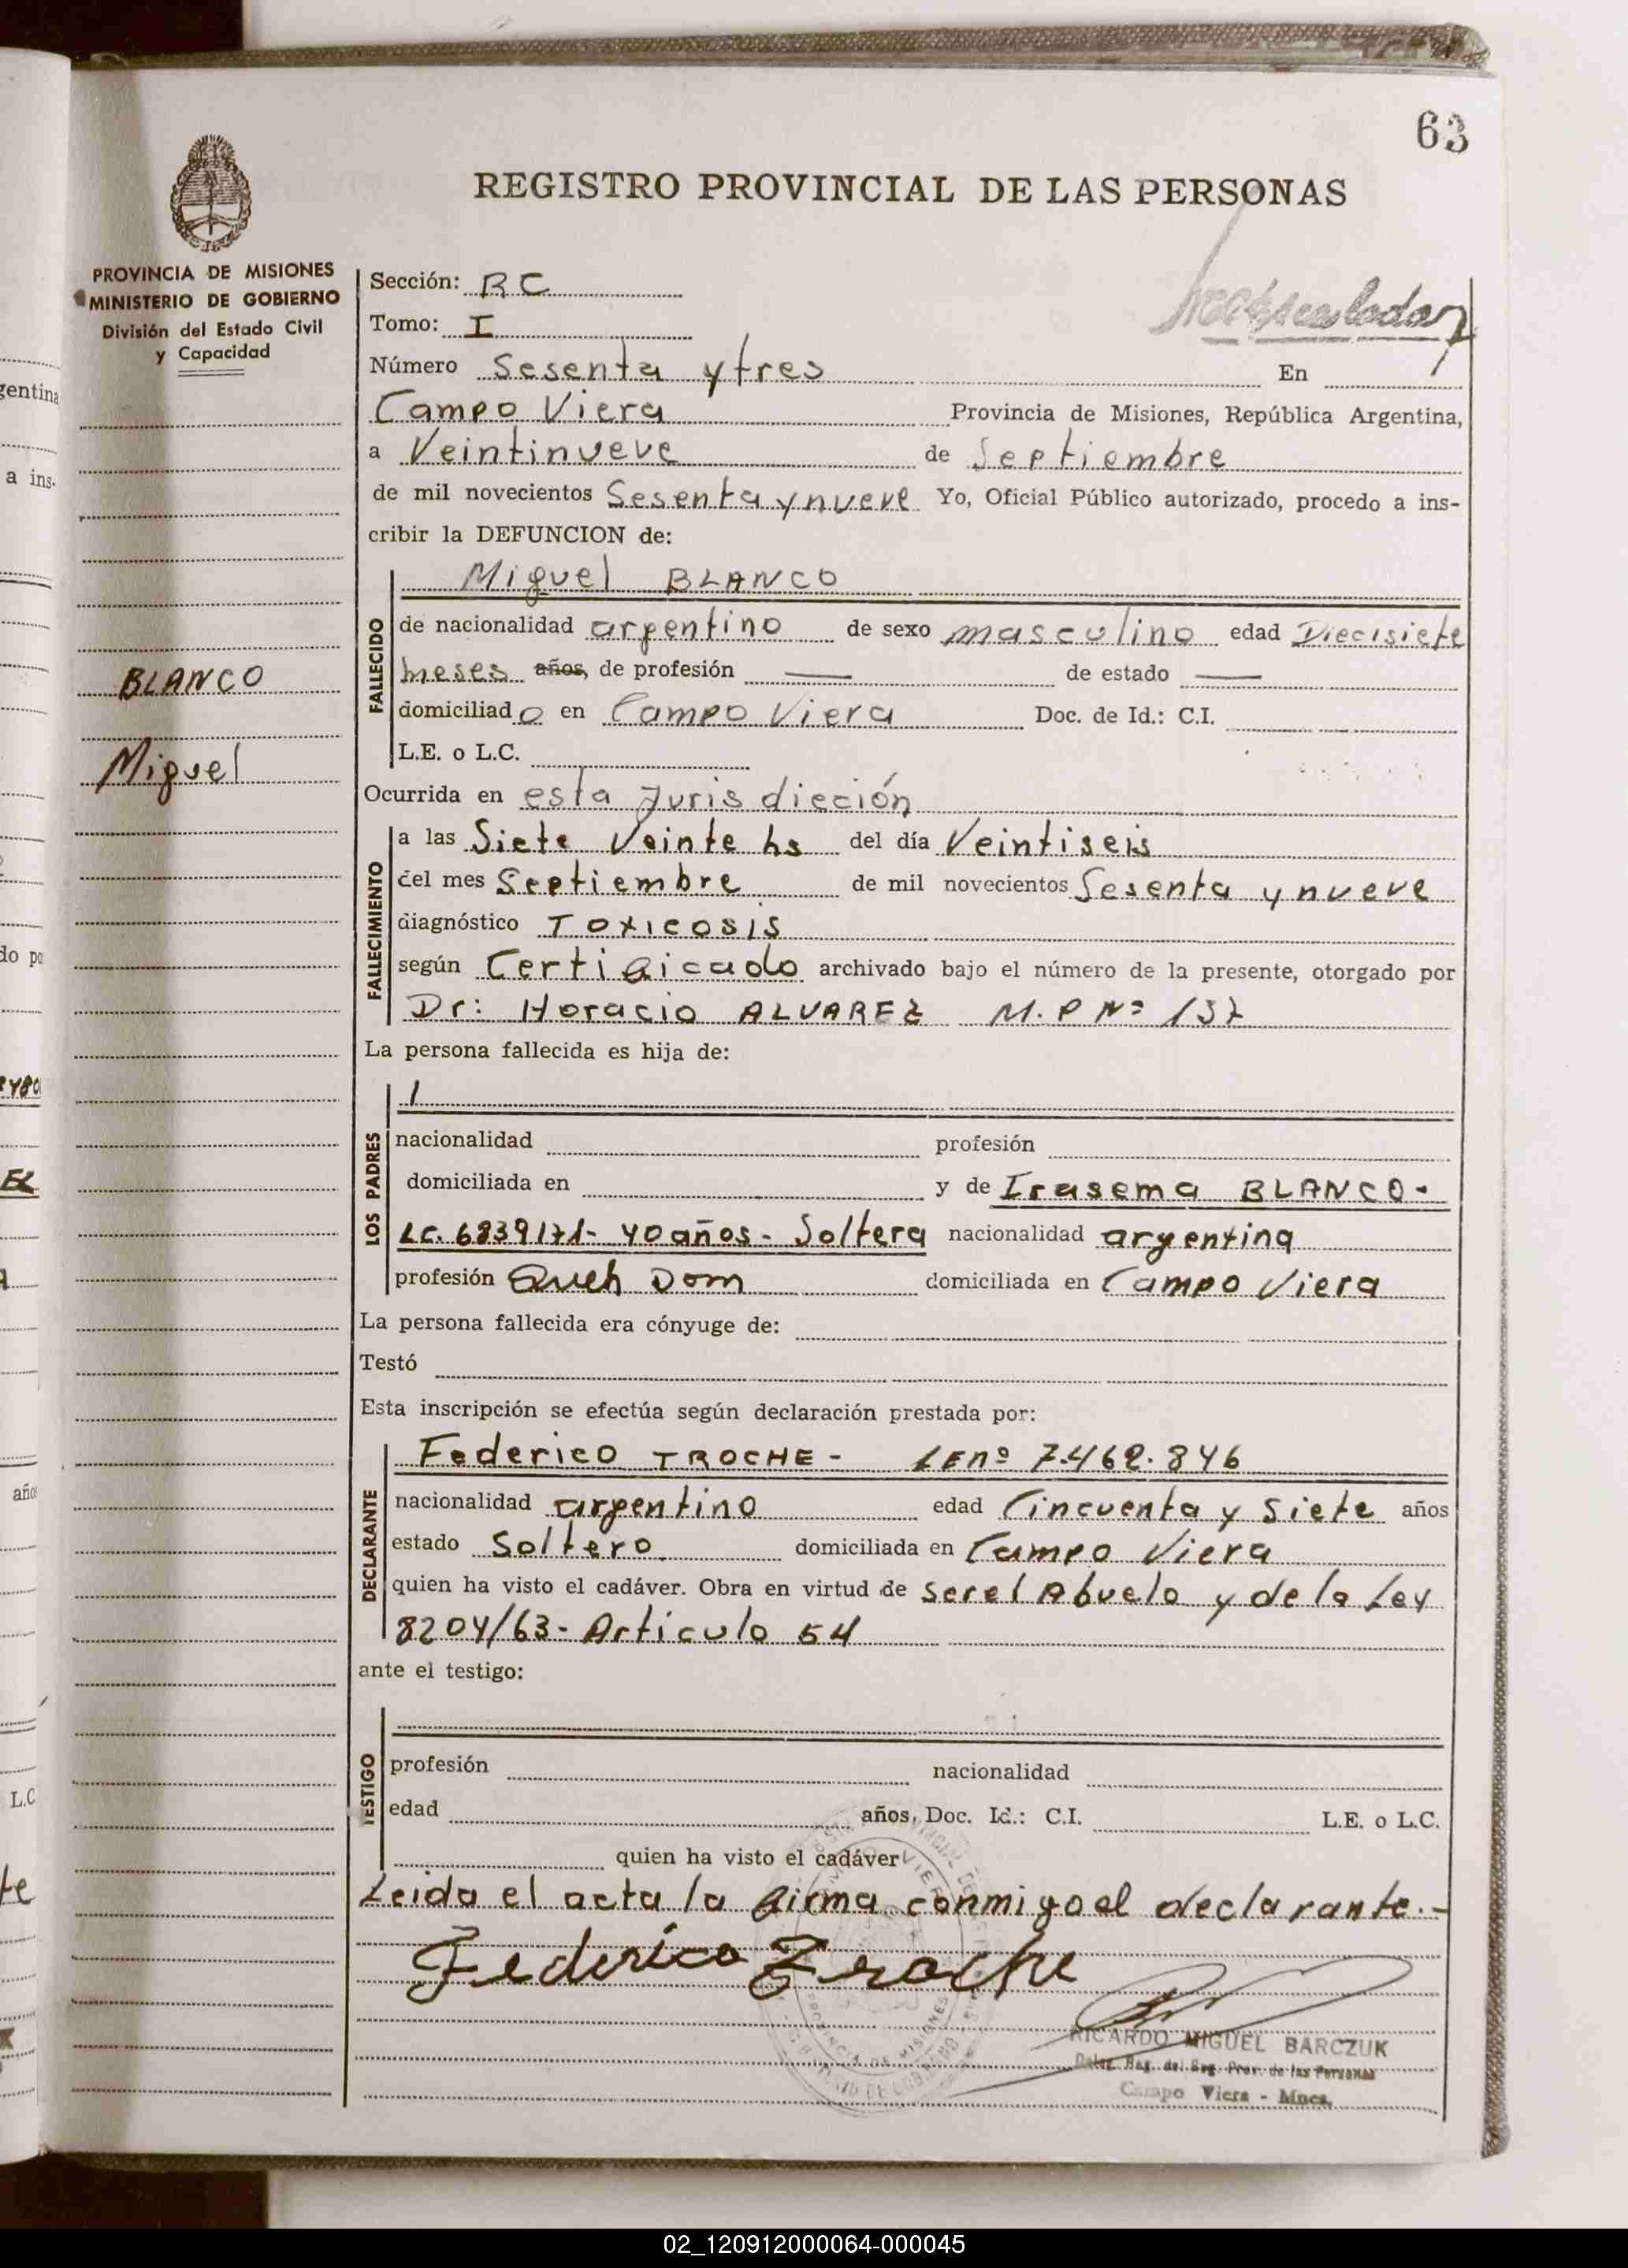 63
REGISTRO PROVINCIAL DE LAS PERSONAS
PROVINCIA DE MISIONES
MINISTERIO DE GOBIERNO
División del Estado Civil
y Capacidad
BLANCO
Miguel
Sección: RC
Tomo: I
Número Sesenta y tres En
Campo Viera Provincia de Misiones, República Argentina,
a Veintinueve de Septiembre
de mil novecientos Sesenta y nueve Yo, Oficial Público autorizado, procedo a ins-
cribir la DEFUNCION de:
Miguel BLANCO
FALLECIDO
de nacionalidad argentino de sexo masculino edad Diecisiete
meses años, de profesión — de estado —
domiciliado en Campo Viera Doc. de Id.: C.I.
L.E. o L.C.
Ocurrida en esta Jurisdieción
FALLECIMIENTO
a las Siete Veinte hs del día Veintiseis
del mes Septiembre de mil novecientos Sesenta y nueve
diagnóstico Toxicosis
según Certificado archivado bajo el número de la presente, otorgado por
Dr: Horacio ALVAREZ M.P Nº 137
La persona fallecida es hija de:
LOS PADRES
nacionalidad profesión
domiciliada en y de Irasema BLANCO-
LC. 6839171- 40 años- Soltera nacionalidad argentina
profesión Queh Dom domiciliada en Campo Viera
La persona fallecida era cónyuge de:
Testó
Esta inscripción se efectúa según declaración prestada por:
Federico TROCHE- LE nº 7.462.846
DECLARANTE
nacionalidad argentino edad Cincuenta y Siete años
estado Soltero domiciliada en Campo Viera
quien ha visto el cadáver. Obra en virtud de ser el Abuelo y de la Ley
8204/63- Artículo 54
ante el testigo:
TESTIGO
profesión nacionalidad
edad años, Doc. Id.: C.I. L.E. o L.C.
quien ha visto el cadáver
Leida el acta la firma conmigo el declarante.-
Federico Troche
RICARDO MIGUEL BARCZUK
Deleg. Reg. del Reg. Prov. de las Personas
Campo Viera - Mnes.
PROVINCIA DE MISIONES
02_120912000064-000045